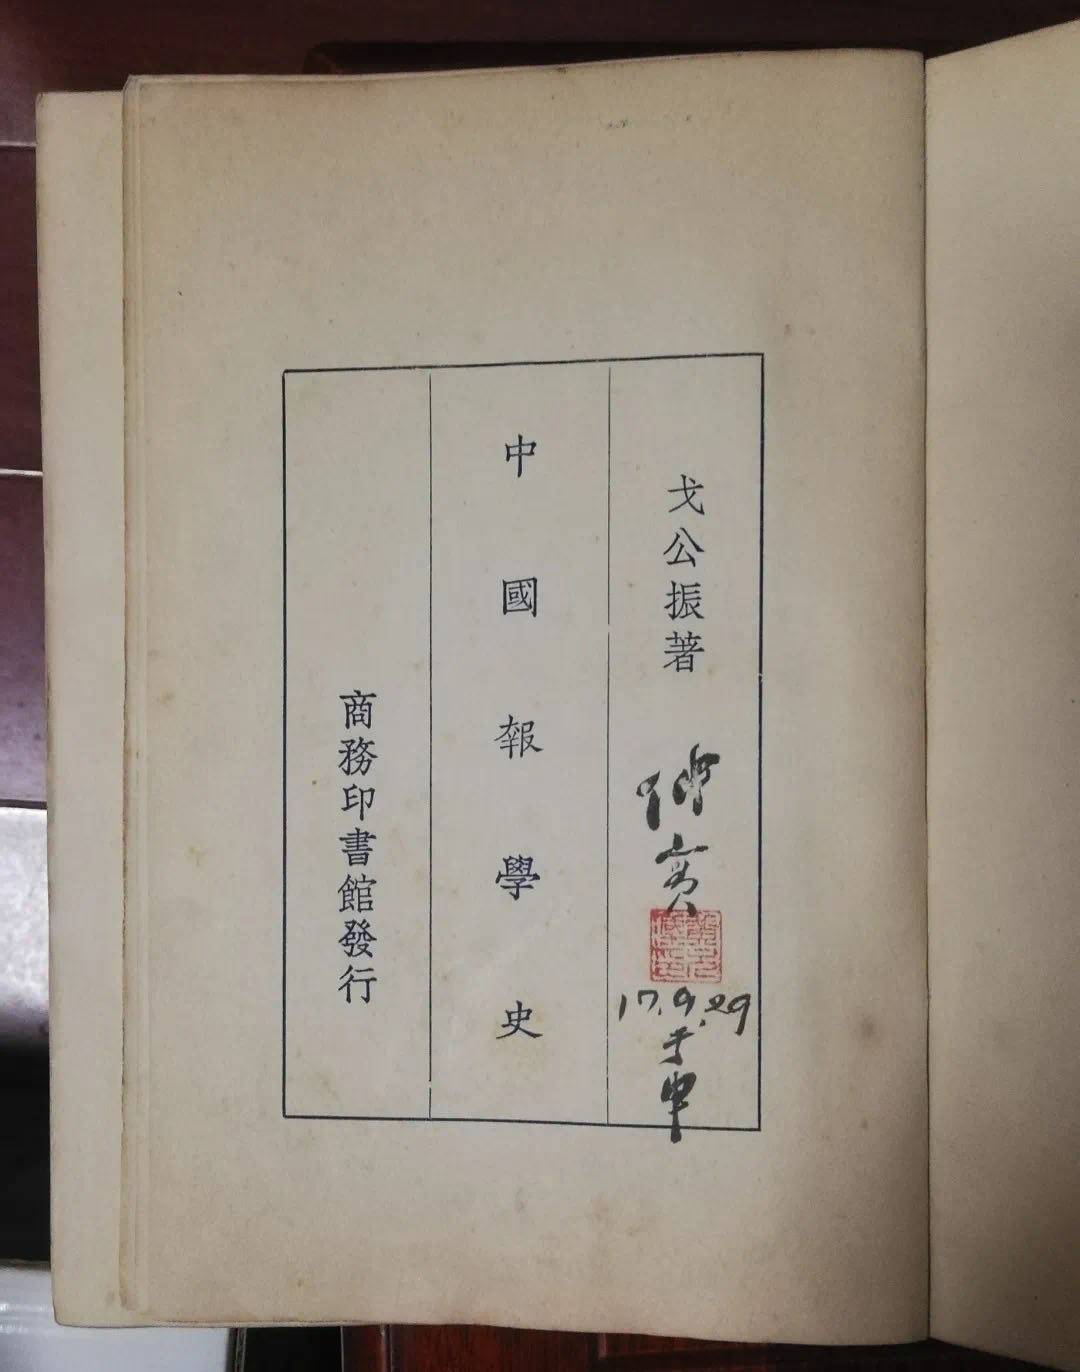 戈公振著
17.9.29
于申
中國報學史
商務印書館發行